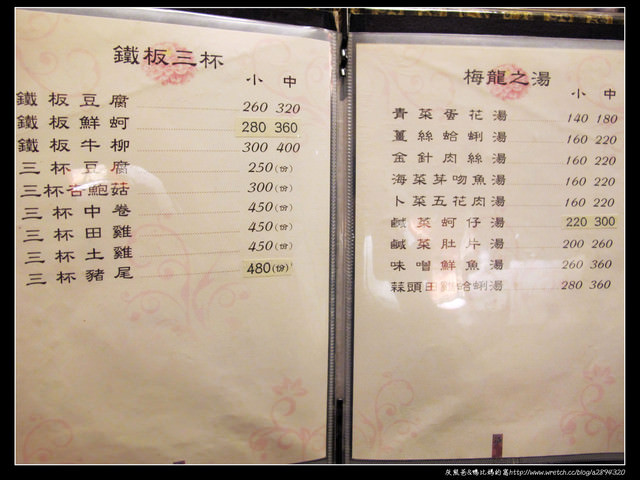 鐵板三杯
小 中
鐵板豆腐 260 320
鐵板鮮蚵 280 360
鐵板牛柳 300 400
三杯豆腐 250(份)
三杯杏鮑菇 300(份)
三杯中卷 450(份)
三杯田雞 450(份)
三杯土雞 450(份)
三杯豬尾 480(份)
梅龍之湯
小 中
青菜蛋花湯 140 180
薑絲蛤蜊湯 160 220
金針肉絲湯 160 220
海菜芽吻魚湯 160 220
卜菜五花肉湯 160 220
鹹菜蚵仔湯 220 300
鹹菜肚片湯 200 260
味噌鮮魚湯 260 360
蒜頭田雞蛤蜊湯 280 360
灰熊爸&鴨比媽的窩http://www.wretch.cc/blog/a2894320